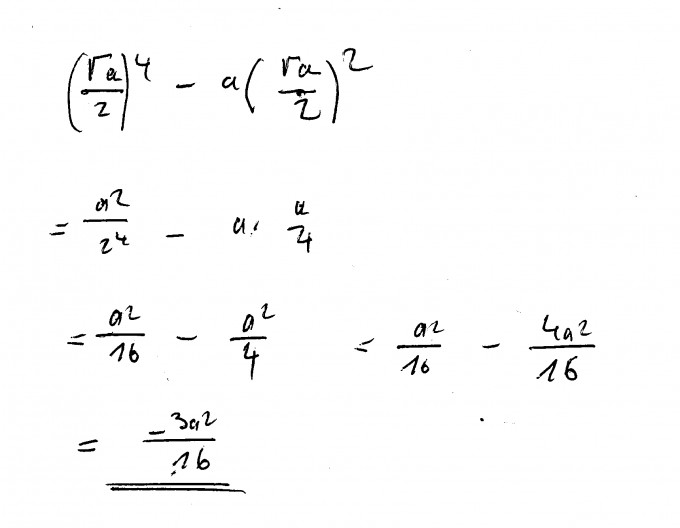 (√a/2)^4 - a(√a/2)^2
= a^2/2^4 - a · a/4
= a^2/16 - a^2/4 = a^2/16 - 4a^2/16
= -3a^2/16